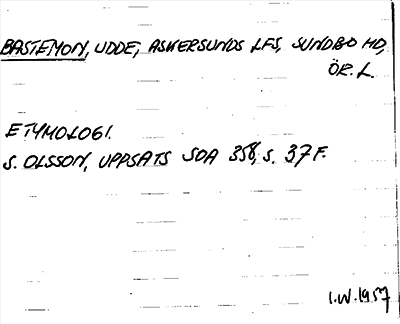 BASTEMON, UDDE, ASKERSUNDS LFS, SUNDBO HD,
ÖR. L.
ETYMOLOGI.
S. OLSSON, UPPSATS SOA 358, S. 37 F.
I.W. 1957